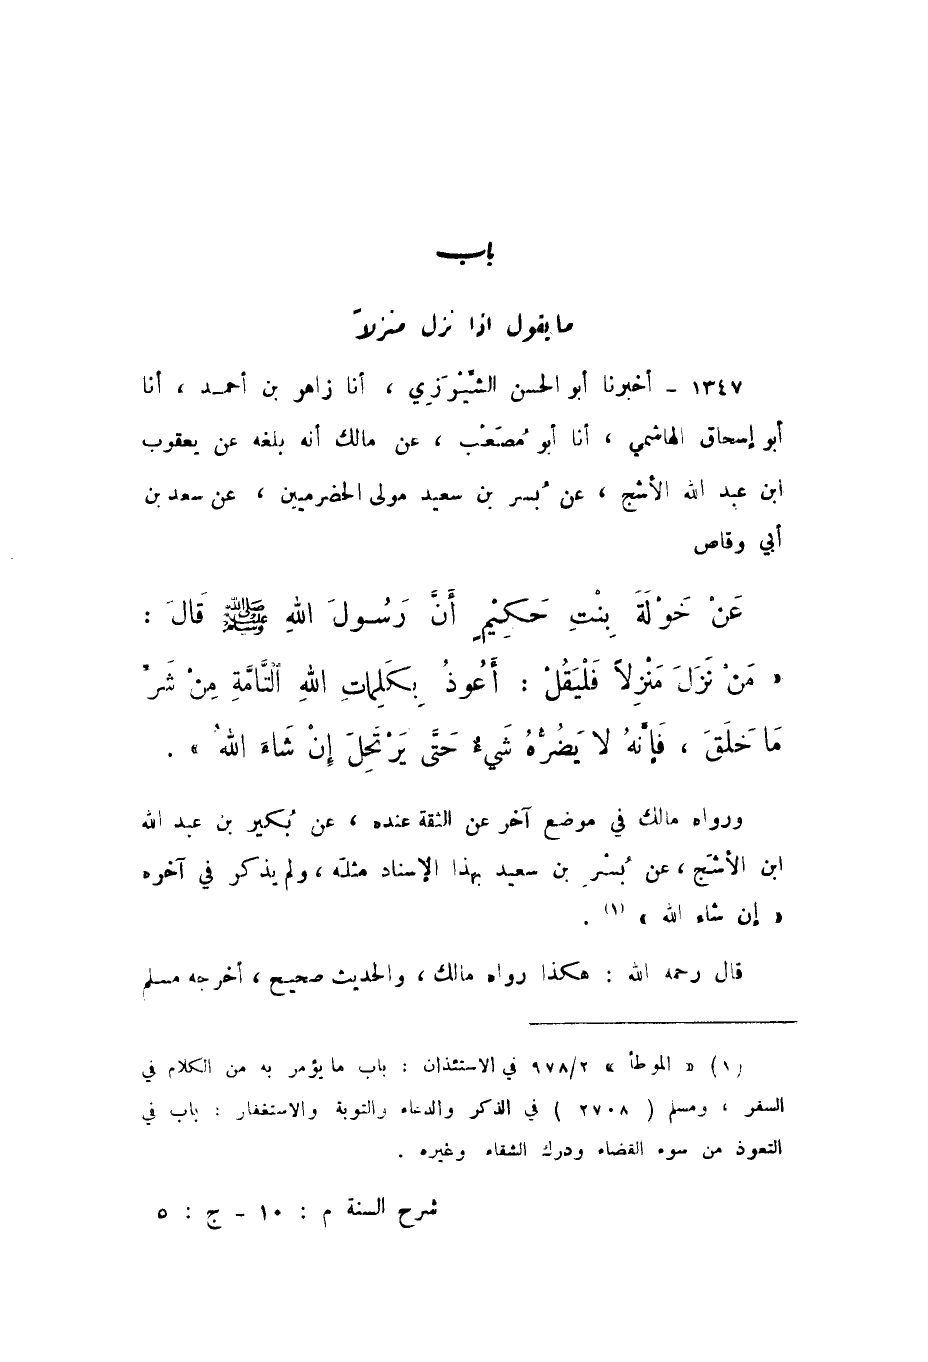 باب
ما يقول اذا نزل منزلاً
١٣٤٧ – أخبرنا أبو الحسن الشِّيرَزِي ، أنا زاهر بن أحمد ، أنا
أبو إسحاق الهاشمي ، أنا أبو مُصعَب ، عن مالك أنه بلغه عن يعقوب
ابن عبد الله الأشج ، عن بُسر بن سعيد مولى الحضرميين ، عن سعد بن
أبي وقاص
عَنْ خَوْلَةَ بِنْتِ حَكِيْمٍ أَنَّ رَسُولَ اللهِ ﷺ قَالَ :
« مَنْ نَزَلَ مَنْزِلاً فَلْيَقُلْ : أَعُوذُ بِكَلِمَاتِ اللهِ التَّامَّةِ مِنْ شَرِّ
مَا خَلَقَ ، فَإِنَّهُ لا يَضُرُّهُ شَيءٌ حَتَّى يَرْتَحِلَ إِنْ شَاءَ اللهُ » .
ورواه مالك في موضع آخر عن الثقة عنده ، عن بُكير بن عبد الله
ابن الأشَج ، عن بُسْرِ بن سعيد بهذا الإسناد مثلَه ، ولم يذكر في آخره
« إن شاء الله » (١) .
قال رحمه الله : هكذا رواه مالك ، والحديث صحيح ، أخرجه مسلم
(١) « الموطأ » ٩٧٨/٢ في الاستئذان : باب ما يؤمر به من الكلام في
السفر ، ومسلم ( ٢٧٠٨ ) في الذكر والدعاء والتوبة والاستغفار : باب في
التعوذ من سوء القضاء ودرك الشقاء وغيره .
شرح السنة م : ١٠ – ج : ٥